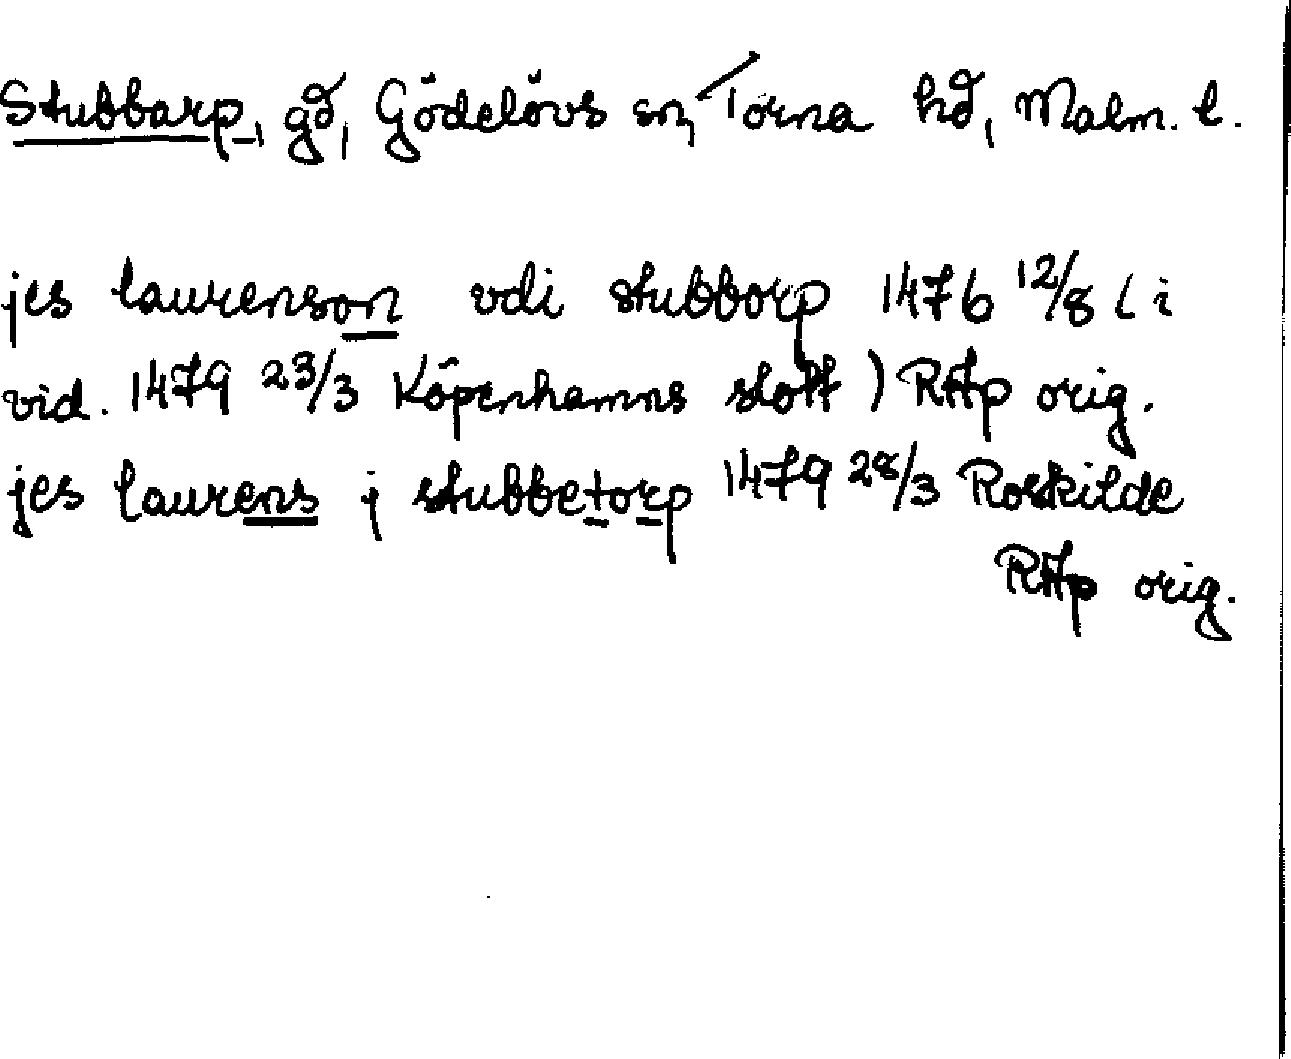 Stubbarp, gd, Gödelövs sn, Torna hd, Malm. l.
jes laurenson vdi stubborp 1476 12/8 (i
vid. 1479 23/3 Köpenhamns slott) RAp orig.
jes laurens j stubbetorp 1479 28/3 Roskilde
RAp orig.